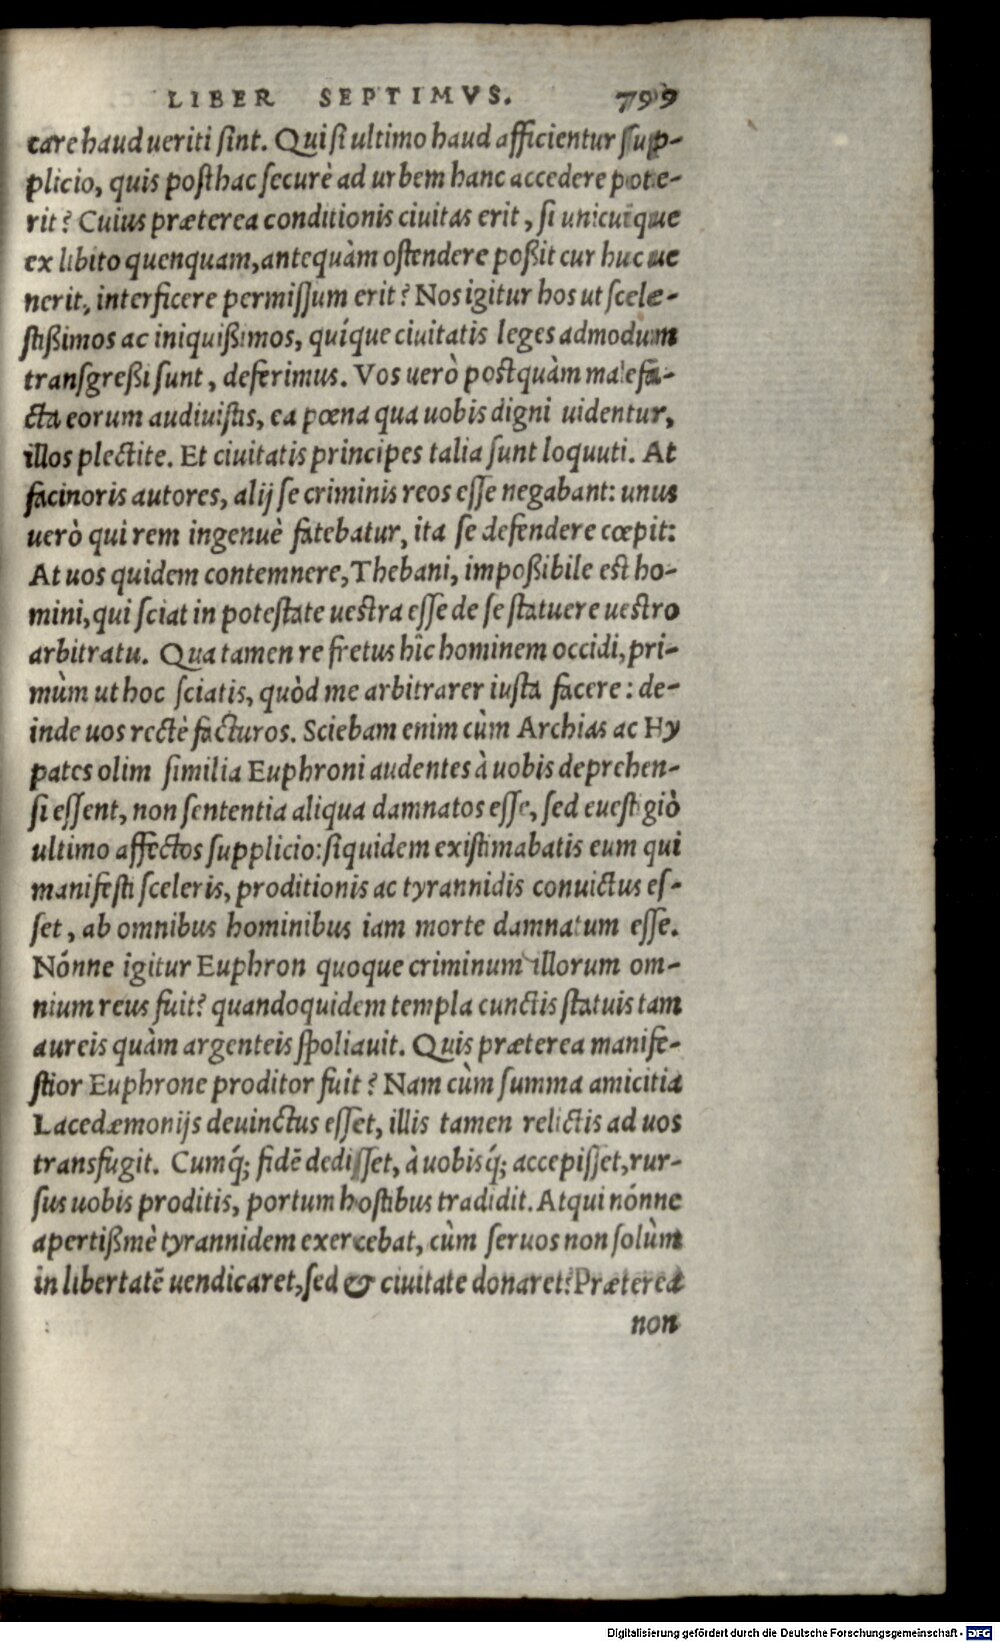 LIBER SEPTIMVS. 799
care haud ueriti sint. Qui si ultimo haud afficientur sup-
plicio, quis posthac securè ad urbem hanc accedere pote-
rit? Cuius præterea conditionis ciuitas erit, si unicuique
ex libito quenquam, antequàm ostendere poßit cur huc ue
nerit, interficere permissum erit? Nos igitur hos ut scele-
stißimos ac iniquißimos, quíque ciuitatis leges admodum
transgreßi sunt, deferimus. Vos uerò postquàm malefa-
cta eorum audiuistis, ea pœna qua uobis digni uidentur,
illos plectite. Et ciuitatis principes talia sunt loquuti. At
facinoris autores, alij se criminis reos esse negabant: unus
uerò qui rem ingenuè fatebatur, ita se defendere cœpit:
At uos quidem contemnere, Thebani, impoßibile est ho-
mini, qui sciat in potestate uestra esse de se statuere uestro
arbitratu. Qua tamen re fretus hîc hominem occidi, pri-
mùm ut hoc sciatis, quòd me arbitrarer iusta facere: de-
inde uos rectè facturos. Sciebam enim cùm Archias ac Hy
pates olim similia Euphroni audentes à uobis deprehen-
si essent, non sententia aliqua damnatos esse, sed euestigiò
ultimo affectos supplicio: siquidem existimabatis eum qui
manifesti sceleris, proditionis ac tyrannidis conuictus es-
set, ab omnibus hominibus iam morte damnatum esse.
Nónne igitur Euphron quoque criminum illorum om-
nium reus fuit? quandoquidem templa cunctis statuis tam
aureis quàm argenteis spoliauit. Quis præterea manife-
stior Euphrone proditor fuit? Nam cùm summa amicitia
Lacedæmonijs deuinctus esset, illis tamen relictis ad uos
transfugit. Cumq́; fidē dedisset, à uobisq́; accepisset, rur-
sus uobis proditis, portum hostibus tradidit. Atqui nónne
apertißmè tyrannidem exercebat, cùm seruos non solùm
in libertatē uendicaret, sed & ciuitate donaret? Præterea
non
Digitalisierung gefördert durch die Deutsche Forschungsgemeinschaft - DFG